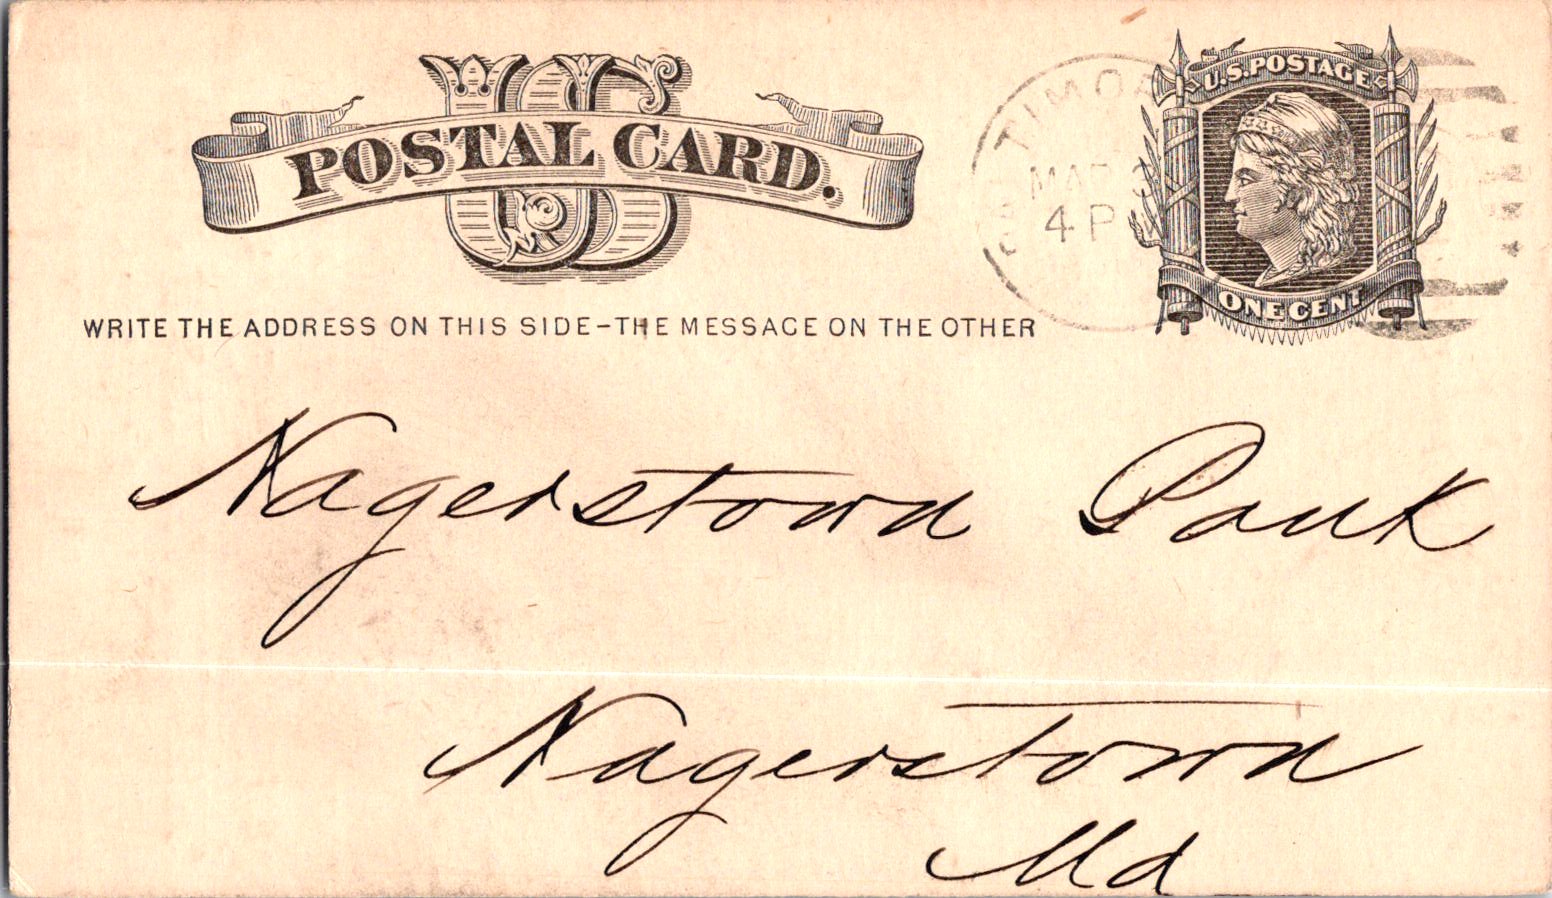 US
POSTAL CARD.
U.S. POSTAGE
ONE CENT
TIMO
MAR 3
4 P
WRITE THE ADDRESS ON THIS SIDE-THE MESSAGE ON THE OTHER
Hagerstown Bank
Hagerstown
Md